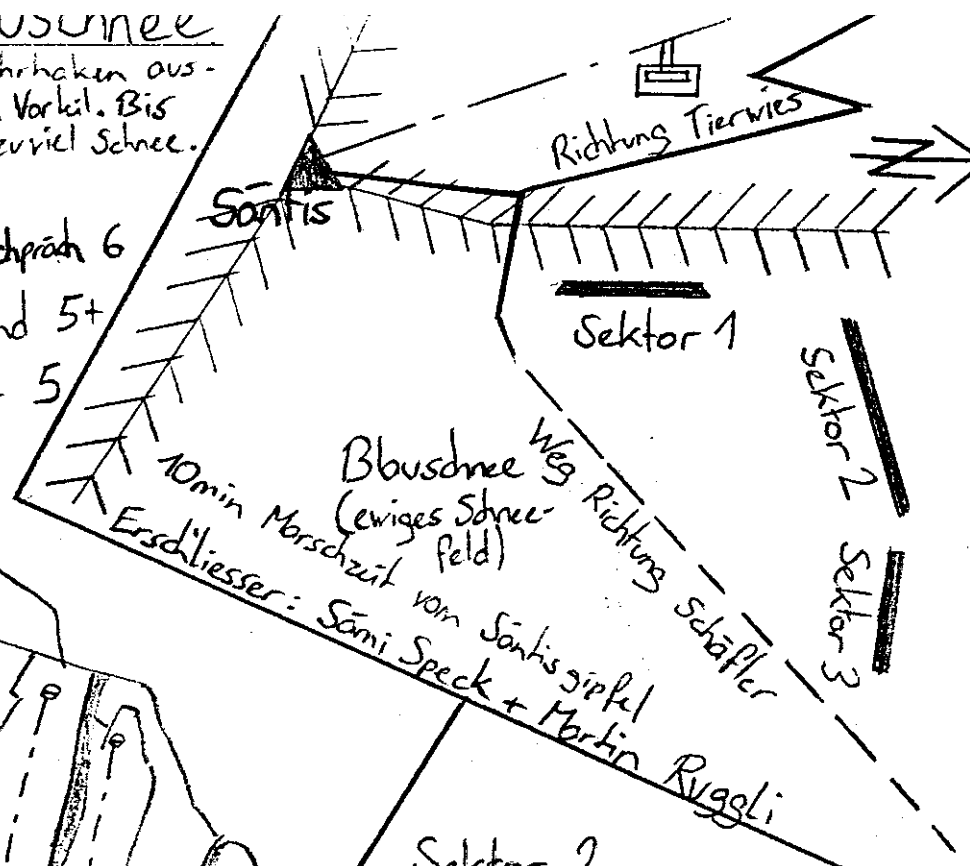 ohrhaken aus-
Vorkil. Bis
viel Schnee.
6
5+
5
Richtung Tierwies
N
Säntis
Sektor 1
Sektor 2
Sektor 3
Blauschnee
(ewiges Schnee-
feld)
Weg Richtung Schäfler
10min Marschzeit vom Säntisgipfel
Erschliesser: Sämi Speck + Martin Ruggli
Sektor 2